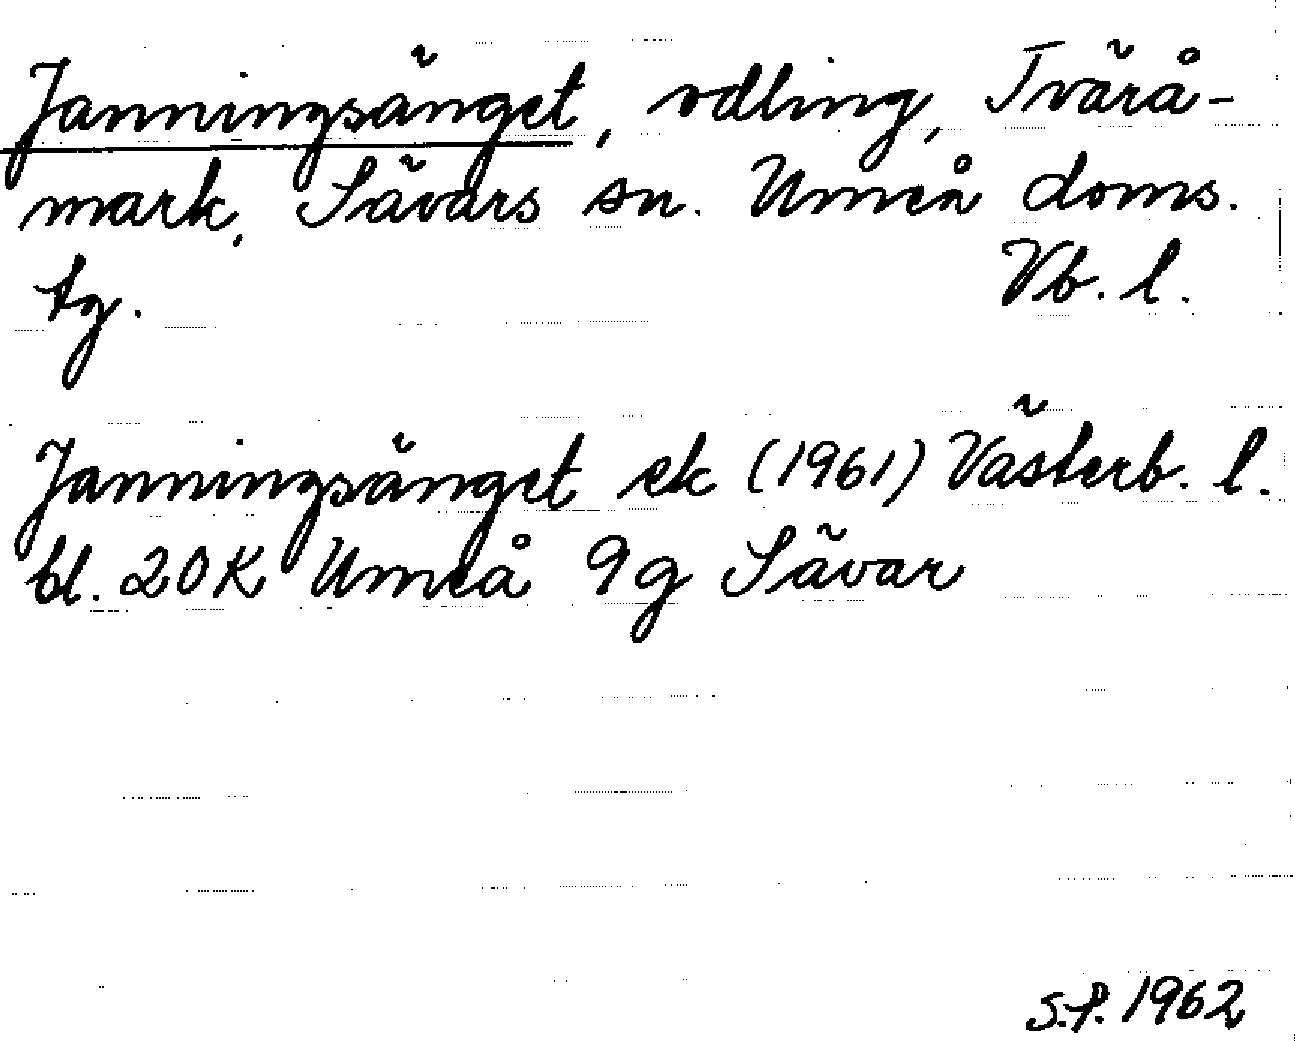 Janningsänget, odling, Tvärå-
mark, Sävars sn. Umeå doms.
tg. Vb. l.
Janningsänget ek (1961) Västerb. l.
bl. 20K Umeå 9g Sävar
S.P. 1962